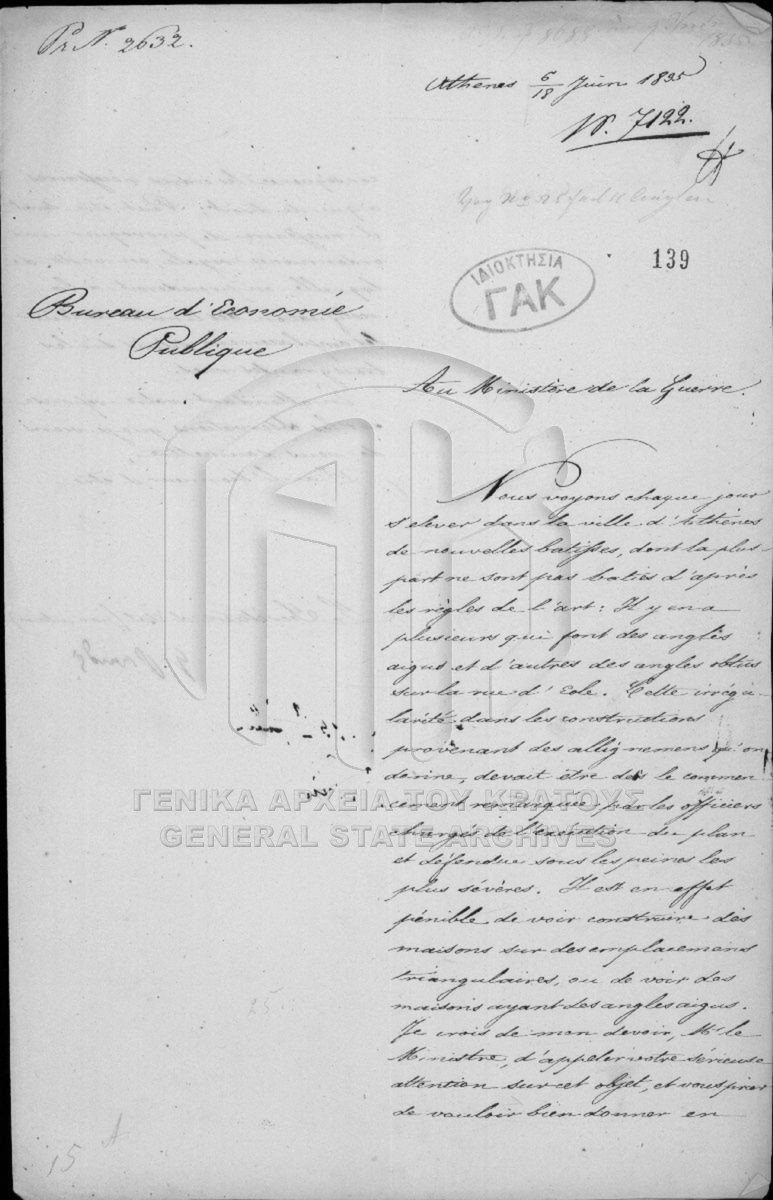 Pr Nº. 2632.
Athenes 6/18 Juin 1835
Nº. 7122.
139
ΙΔΙΟΚΤΗΣΙΑ
ΓΑΚ
Bureau d'Economie
Publique
Au Ministère de la Guerre.
Nous voyons chaque jour
s'elever dans la ville d'Athènes
de nouvelles batisses, dont la plus-
part ne sont pas baties d'après
les règles de l'art: Il y en a
plusieurs qui font des angles
aigus et d'autres des angles obtus
sur la rue d'Eole. Cette irrégu-
larité dans les constructions
provenant des allignemens qu'on
donne, devait être dès le commen
cement remarquée, par les officiers
chargés de l'exécution du plan
et défendue sous les peines les
plus sévères. Il est en effet
pénible de voir construire des
maisons sur des emplacemens
triangulaires, ou de voir des
maisons ayant des angles aigus.
Je crois de mon devoir, Mr le
Ministre, d'appeler votre sérieuse
attention sur cet objet, et vous prier
de vouloir bien donner en
ΓΕΝΙΚΑ ΑΡΧΕΙΑ ΤΟΥ ΚΡΑΤΟΥΣ
GENERAL STATE ARCHIVES
25
15 A